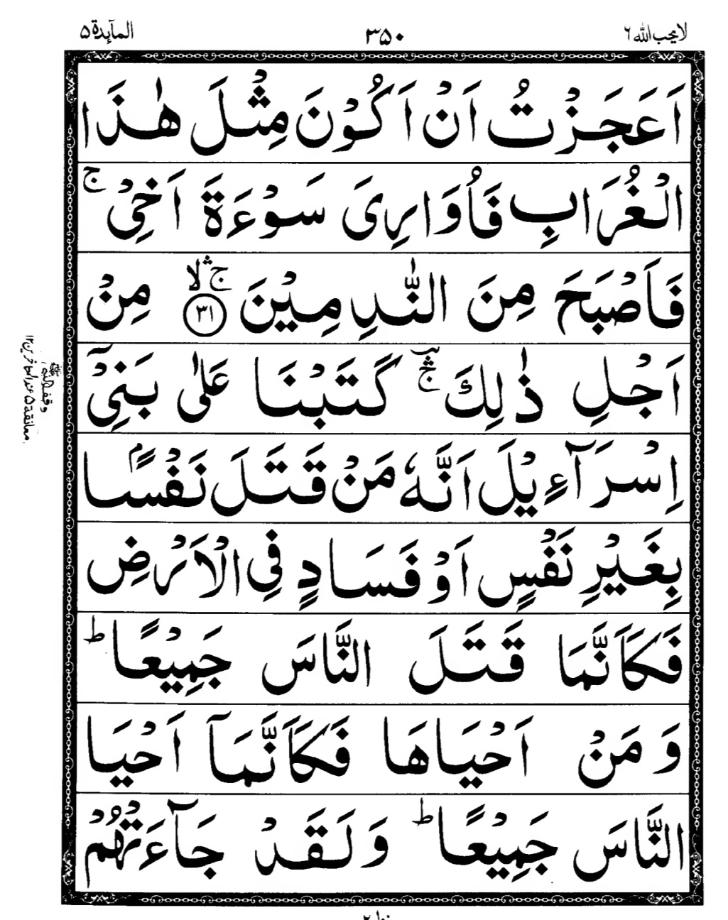 لايحب الله ٦ ٣٥٠ المآىدة ٥
اَعَجَزْتُ اَنْ اَكُوْنَ مِثْلَ هٰذَا
الْغُرَابِ فَاُوَارِيَ سَوْءَةَ اَخِيْ ۚ
فَاَصْبَحَ مِنَ النّٰدِمِيْنَ ﴿٣١﴾ ۚۛۙ مِنْ
اَجْلِ ذٰلِكَ ؔۛۚ كَتَبْنَا عَلٰى بَنِيْٓ
اِسْرَآءِيْلَ اَنَّهٗ مَنْ قَتَلَ نَفْسًۢا
بِغَيْرِ نَفْسٍ اَوْ فَسَادٍ فِي الْاَرْضِ
فَكَاَنَّمَا قَتَلَ النَّاسَ جَمِيْعًا ؕ
وَ مَنْ اَحْيَاهَا فَكَاَنَّمَآ اَحْيَا
النَّاسَ جَمِيْعًا ؕ وَلَقَدْ جَآءَتْهُمْ